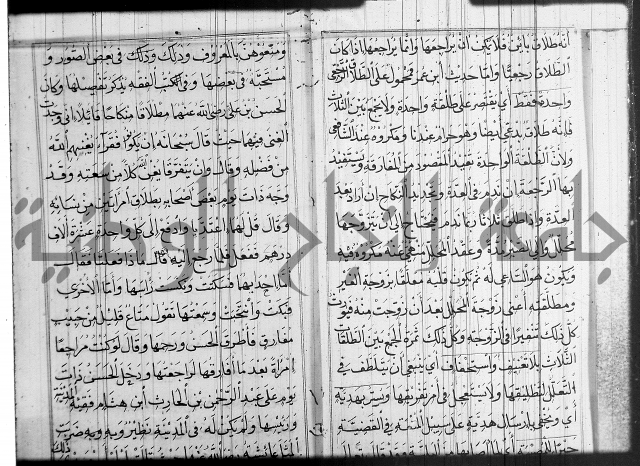 أنه طلاق بائن فلا يمكن أن يراجعها وإنما يراجعها إذا كان
الطلاق رجعيا وأما حديث ابن عمر فمحمول على الطلاق الرجعي
واحدة فقط أي يقتصر على طلقة واحدة ولا يجمع بين الثلاث
فإنه طلاق بدعي أيضا وهو حرام عندنا ومكروه عند الشافعي
ولأن الطلقة الواحدة تفيد المقصود من المفارقة ويستفيد
بها الرجعة إن ندم في العدة وتجديد النكاح إن أراد بعد
العدة وإذا طلق ثلاثا ربما ندم فيحتاج إلى أن يتزوجها
محلل وإلى الصبر مدة وعقد المحلل منهي عنه مكروه فيه
ويكون هو الساعي له ثم يكون قلبه معلقا بزوجة الغير
ومطلقته أعني زوجة المحلل بعد أن زوجت منه فيورث
كل ذلك تنفيرا في الزوجة وكل ذلك ثمرة الجمع بين الطلقات
الثلاث بلا تعنيف واستخفاف أي ينبغي أن يتلطف في
التعلل لتطليقها ولا يستعجل في أمر تفريقها ويسر بهدية
أي ويجبي بإرسال هدية على سبيل المتعة في القضية
ومتعوهن بالمعروف وذلك وذلك في بعض الصور و
مستحبة في بعضها وفي كتب الفقه يذكر تفصيلها وكان
الحسن بن علي رضي الله عنهما مطلاقا منكاحا قائلا إني وجدت
الغنى فيهما حيث قال سبحانه إن يكونوا فقراء يغنيهم الله
من فضله وقال وإن يتفرقا يغن الله كلا من سعته وقد
وجه ذات يوم بعض أصحابه بطلاق امرأتين من نسائه
وقال قل لهما اعتدا وادفع إلى كل واحدة عشرة آلاف
درهم ففعل فلما رجع إليه قال ماذا فعلتا فقال
أما إحديهما فسكتت ونكست رأسها وأما الأخرى
فبكت وانتحبت وسمعتها تقول متاع قليل من حبيب
مفارق فأطرق الحسن ورحمها وقال لو كنت مراجعا
امرأة بعد ما أفارقها لراجعتها ودخل الحسن ذات
يوم على عبد الرحمن بن الحارث بن هشام فقيه المدينة
ورئيسها ولم يكن له في المدينة نظير وبه ضربت